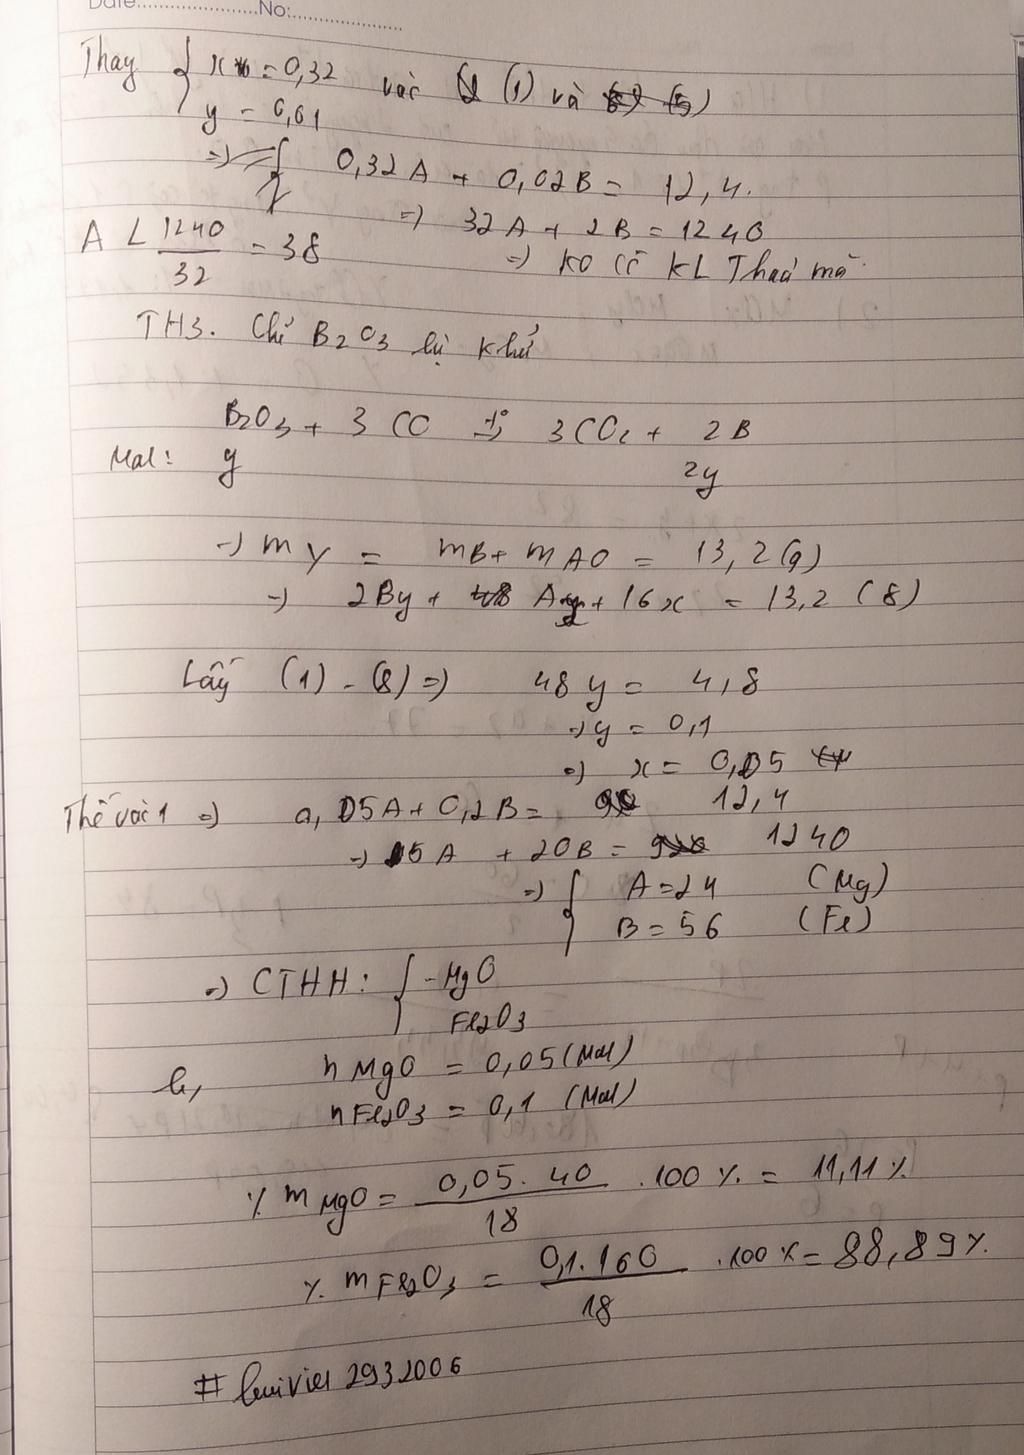 Date..................No:...................
Thay { x = 0,32 vào (1) và
y = 0,01
=> 0,32A + 0,02B = 12,4.
=> 32A + 2B = 1240
A < 1240/32 = 38 => ko có KL Thoả mã
TH3. Chỉ B2O3 bị khử
B2O3 + 3 CO t°→ 3CO2 + 2B
Mol: y 2y
=> mY = mB + mAO = 13,2(g)
=> 2By + Ax + 16x = 13,2 (8)
Lấy (1) - (8) => 48y = 4,8
=> y = 0,1
=> x = 0,05
Thế vào 1 => 0,05A + 0,2B = 12,4
=> 5A + 20B = 1240
=> { A = 24 (Mg)
B = 56 (Fe)
=> CTHH: { MgO
Fe2O3
b, nMgO = 0,05 (Mol)
nFe2O3 = 0,1 (Mol)
% mMgO = 0,05.40/18 .100 % = 11,11 %
% mFe2O3 = 0,1.160/18 .100 % = 88,89 %.